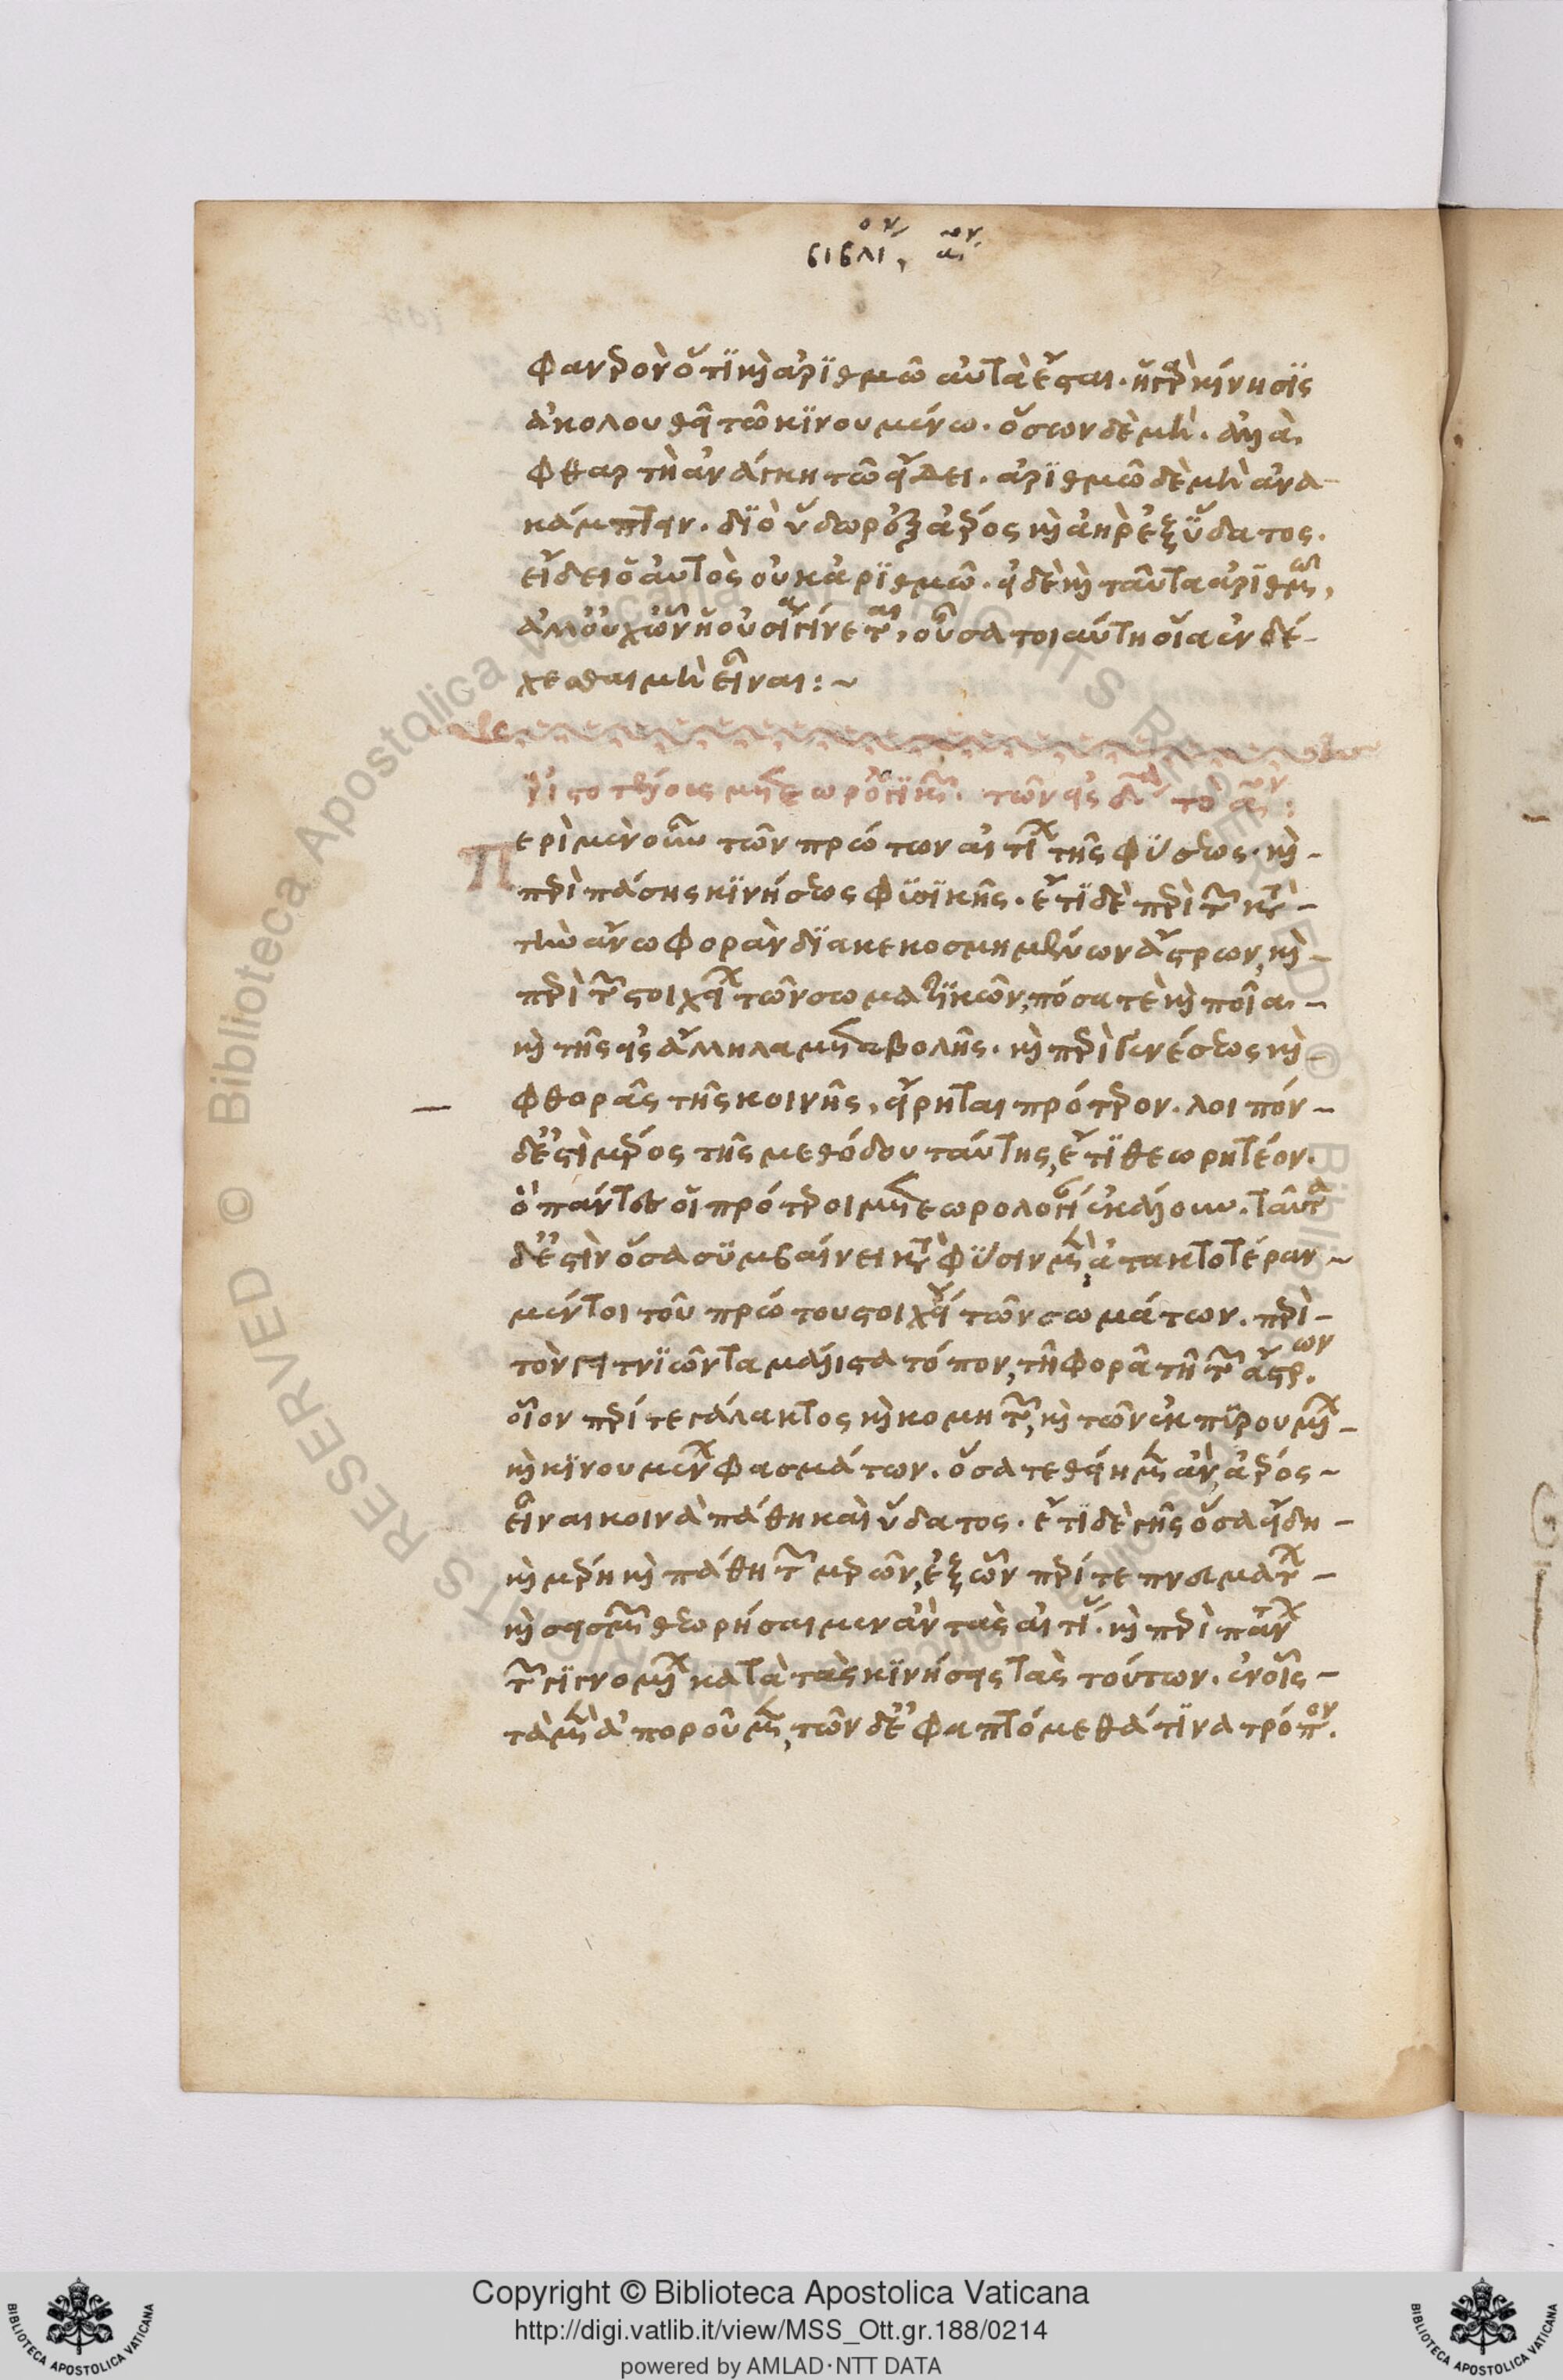 βιβλίον, αον
φανερὸν ὅτι καὶ ἀριθμῶ αὐτὰ ἔσται. ἡ γὰρ κίνησις
ἀκολουθεῖ τῶ κινουμένω. ὅσων δὲ μὴ. ἀλλὰ
φθαρτὴ ἀνάγκη τῶ εἴδει. ἀριθμῶ δὲ μὴ ἀνα-
κάμπτειν. διὸ ὕδωρ ἐξ ἀέρος καὶ ἀὴρ ἐξ ὕδατος.
εἴδει ὁ αὐτὸς οὐκ ἀριθμῶ. εἰ δὲ καὶ ταῦτα ἀριθμῶ,
ἀλλ' οὐχ ὧν ἡ οὐσία γίνεται, οὖσα τοιαύτη οἵα ἐνδέ-
χεσθαι μὴ εἶναι:~
ἀριστοτέλους μετεωρολογικῶν. τῶν εἰς δ τὸ αον:
Περὶ μὲν οὖν τῶν πρώτων αἰτίων τῆς φύσεως. καὶ-
περὶ πάσης κινήσεως φυσικῆς. ἔτι δὲ περὶ τῶν κατὰ-
τὴν ἄνω φορὰν διακεκοσμημένων ἄστρων, καὶ-
περὶ τῶν στοιχείων τῶν σωματικῶν, πόσα τὲ καὶ ποῖα.-
καὶ τῆς εἰς ἄλληλα μεταβολῆς. καὶ περὶ γενέσεως καὶ-
φθορᾶς τῆς κοινῆς, εἴρηται πρότερον. λοιπόν-
δ' ἐστὶ μέρος τῆς μεθόδου ταύτης, ἔτι θεωρητέον.
ὃ πάντες οἱ πρότεροι μετεωρολογίαν ἐκάλουν. ταῦτα
δ' ἐστὶν ὅσα συμβαίνει κατὰ φύσιν μὲν, ἀτακτοτέραν~
μέντοι τοῦ πρώτου στοιχείου τῶν σωμάτων. περὶ-
τὸν γειτνιῶντα μάλιστα τόπον, τῆ φορᾶ τῆ τῶν ἄστρων.
οἷον περί τε γάλακτος καὶ κομητῶν, καὶ τῶν ἐκπυρουμένων-
καὶ κινουμένων φασμάτων. ὅσα τε θείημεν ἂν, ἀέρος-
εἶναι κοινὰ πάθη καὶ ὕδατος. ἔτι δὲ γῆς ὅσα εἴδη-
καὶ μέρη καὶ πάθη τῶν μερῶν, ἐξ ὧν περί τε πνευμάτων-
καὶ σεισμῶν θεωρήσαιμεν ἂν τὰς αἰτίας. καὶ περὶ πάντων
τῶν γιγνομένων κατὰ τὰς κινήσεις τὰς τούτων. ἐν οἷς-
τὰ μὲν ἀποροῦμεν, τῶν δ' ἐφαπτόμεθά τινα τρόπον.
Copyright © Biblioteca Apostolica Vaticana
http://digi.vatlib.it/view/MSS_Ott.gr.188/0214
powered by AMLAD·NTT DATA